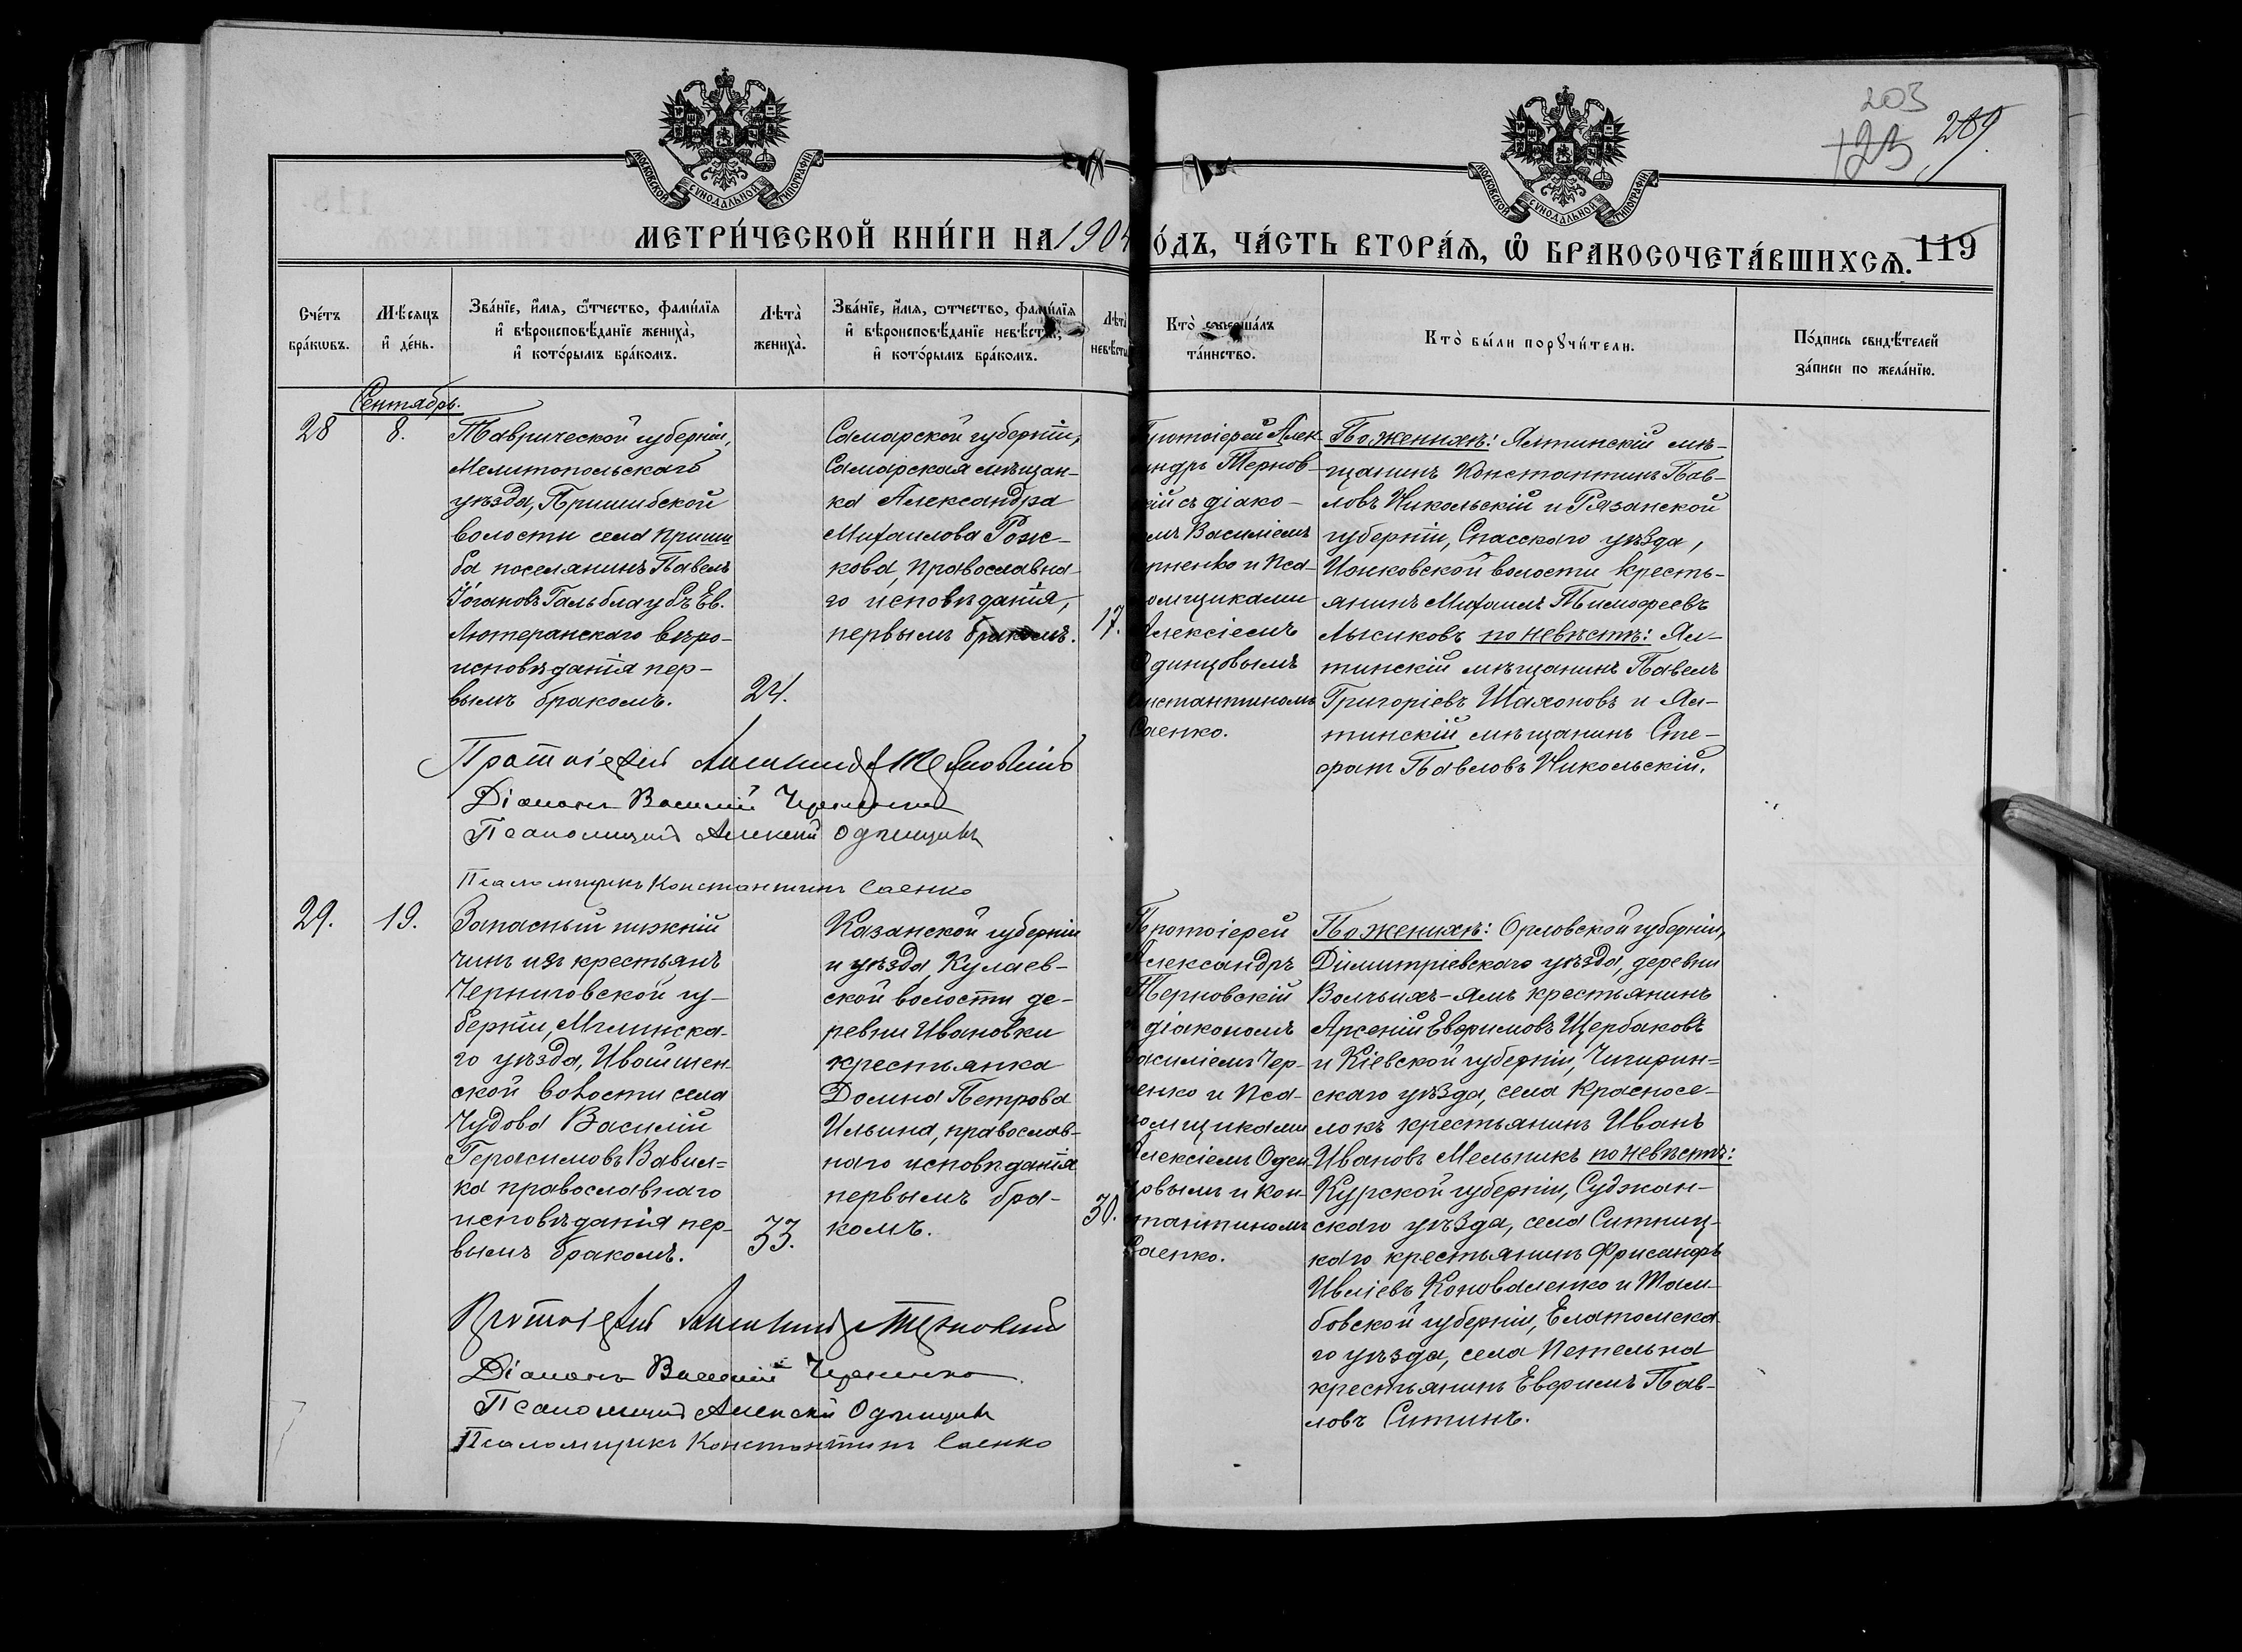 203
+23
289
МОСКОВСКОЙ СѴНОДАЛЬНОЙ ТИПОГРАФІИ
МОСКОВСКОЙ СѴНОДАЛЬНОЙ ТИПОГРАФІИ
МЕТРИ́ЧЕСКОЙ КНИ́ГИ НА 1904
О́ДЪ, ЧА́СТЬ ВТОРА́Ѧ, Ѡ҆ БРАКОСОЧЕТА́ВШИХСѦ.
119
Сче́тъ
бра́кѡвъ.
Мѣ́сяцъ
и҆ де́нь.
Зва́нїе, и҆́мя, ѻ҆́тчество, фами́лїя
и҆ вѣроисповѣ́данїе жениха̀,
и҆ кото́рымъ бра́комъ.
Лѣта̀
жениха̀.
Зва́нїе, и҆́мя, ѻтчество, фами́лїя
и҆ вѣроисповѣ́данїе невѣ́сты,
и҆ кото́рымъ бра́комъ.
Лѣта̀
невѣ́сты
Кто̀ соверша́лъ
та́инство.
Кто̀ бы́ли порꙋчи́тели.
По́дпись свидѣ́телей
за́писи по жела́нїю.
Сентябрь.
28
8.
Таврической губерніи,
Мелитопольскаго
уѣзда, Пришибской
волости села Приши
ба поселянинъ Павелъ
Іогановъ Гальблаубъ Ев.
Лютеранскаго вѣро-
исповѣданія пер-
вымъ бракомъ.
24.
Самарской губерніи,
Самарская мѣщан-
ка Александра
Михаилова Рож-
кова, православна-
го исповѣданія,
первымъ бракомъ.
17.
Протоіерей Алек-
андръ Тернов-
кій съ діако-
омъ Василіемъ
ерненко и Пса-
омщиками
Алексіемъ
Одинцовымъ
онстантиномъ
Саенко.
По женихѣ: Ялтинскій мѣ-
щанинъ Константинъ Пав-
ловъ Никольскій и Рязанской
губерніи, Спасскаго уѣзда,
Ижковской волости кресть-
янинъ Михаилъ Тимофеевъ
Лысиковъ по невѣстѣ: Ял-
тинскій мѣщанинъ Павелъ
Григоріевъ Шахоновъ и Ял-
тинскій мѣщанинъ Сте-
фанъ Павловъ Никольскій.
Протоіерей Александръ Терновскій
Діаконъ Василій Черненко
Псаломщикъ Алексій Одинцовъ
Псаломщикъ Константинъ Саенко
29.
19.
Запасный нижній
чинъ изъ крестьянъ
Черниговской гу-
берніи, Мглинска-
го уѣзда, Ивайтен
ской волости села
Чудова Василій
Герасимовъ Вавил=
ка православнаго
исповѣданія пер-
вымъ бракомъ.
33.
Казанской губерніи
и уѣзда Кулаев-
ской волости де-
ревни Ивановки
крестьянка
Домна Петрова
Ильина, православ-
наго исповѣданія
первымъ бра-
комъ.
30.
Протоіерей
Александръ
Терновскій
діакономъ
Василіемъ Чер-
ненко и Пса-
омщиками
Алексіемъ Один-
цовымъ и Кон-
стантиномъ
Саенко.
По женихѣ: Орловской губерніи,
Димитріевскаго уѣзда, деревни
Волчьихъ-ямъ крестьянинъ
Арсеній Евфимовъ Щербаковъ
и Кіевской губерніи, Чигирин=
скаго уѣзда, села Красносе-
локъ крестьянинъ Иванъ
Ивановъ Мельникъ по невѣстѣ:
Курской губерніи, Суджан-
скаго уѣзда, села Ситниц-
каго крестьянинъ Фрисанфъ
Ивліевъ Коноваленко и Там-
бовской губерніи, Елатомска
го уѣзда, села Петельна
крестьянинъ Евфимъ Пав-
ловъ Ситинъ.
Протоіерей Александръ Терновскій
Діаконъ Василій Черненко
Псаломщикъ Алексій Одинцовъ
Псаломщикъ Константинъ Саенко